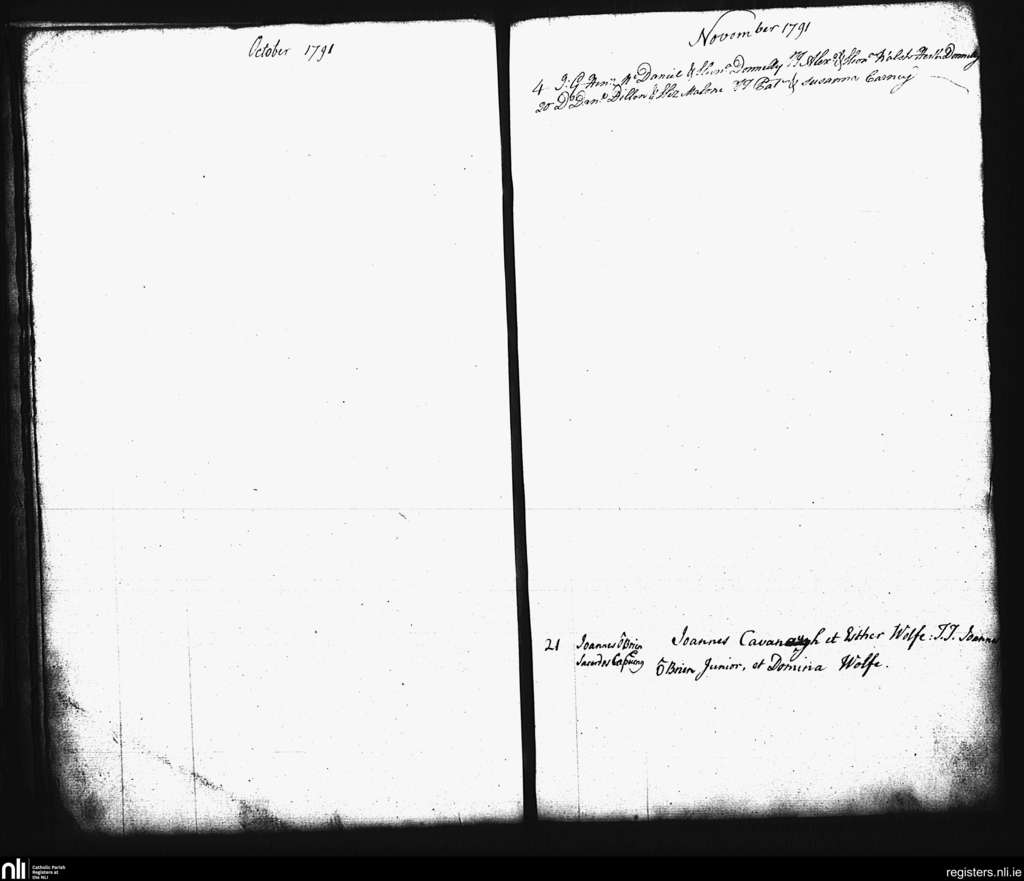 October 1791
November 1791
4 J: G Hen: Mc Daniel & Elean Donnelly TT Alex & Elean Walsh Donnelly
20 Do Dan Dillon & Eliz Malone TT Pat & Susanna Carney
21 Joannes O'Brien Joannes Cavanagh et Esther Wolfe: T.T. Joannes
Sacerdos O'Brien Junior, et Domina Wolfe.
nli Catholic Parish
Registers at
the NLI
registers.nli.ie